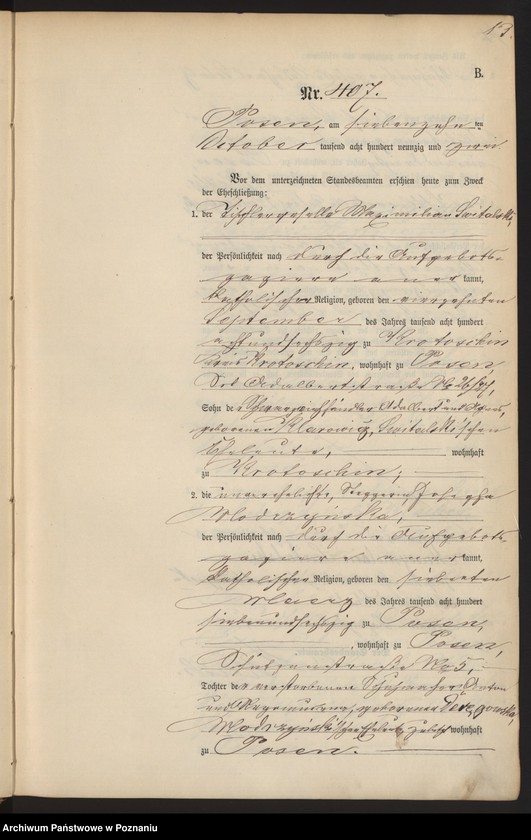 B.
Nr. 407.
Posen, am siebenzehn ten
October tausend acht hundert neunzig und zwei
Vor dem unterzeichneten Standesbeamten erschien heute zum Zweck
der Eheschließung:
1. der Tischlergeselle Maximilian Switalski,
der Persönlichkeit nach durch die Aufgebots-
papiere aner kannt,
katholischer Religion, geboren den vierzehnten
September des Jahres tausend acht hundert
achtundsechszig zu Krotoschin
Kreis Krotoschin, wohnhaft zu Posen,
Skt Adalbertstraße No 26/27,
Sohn des Adalbert und Agnes,
geborenen Switalski'schen
Eheleute, wohnhaft
zu Krotoschin;
2. die unverehelichte, Josepha
Modrzyńska,
der Persönlichkeit nach durch die Aufgebots-
papiere aner kannt,
katholischer Religion, geboren den siebenten
März des Jahres tausend acht hundert
siebenundsechszig zu Posen,
wohnhaft zu Posen,
Schützenstraße No 5,
Tochter der verstorbenen Schuhmacher Anton
und geborenen
Modrzyński'schen Eheleute, zuletzt wohnhaft
zu Posen.
Archiwum Państwowe w Poznaniu